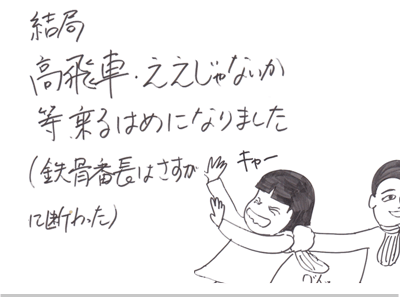 結局
高飛車・ええじゃないか
等乗るはめになりました
(鉄骨番長はさすが
に断わった)
キャー